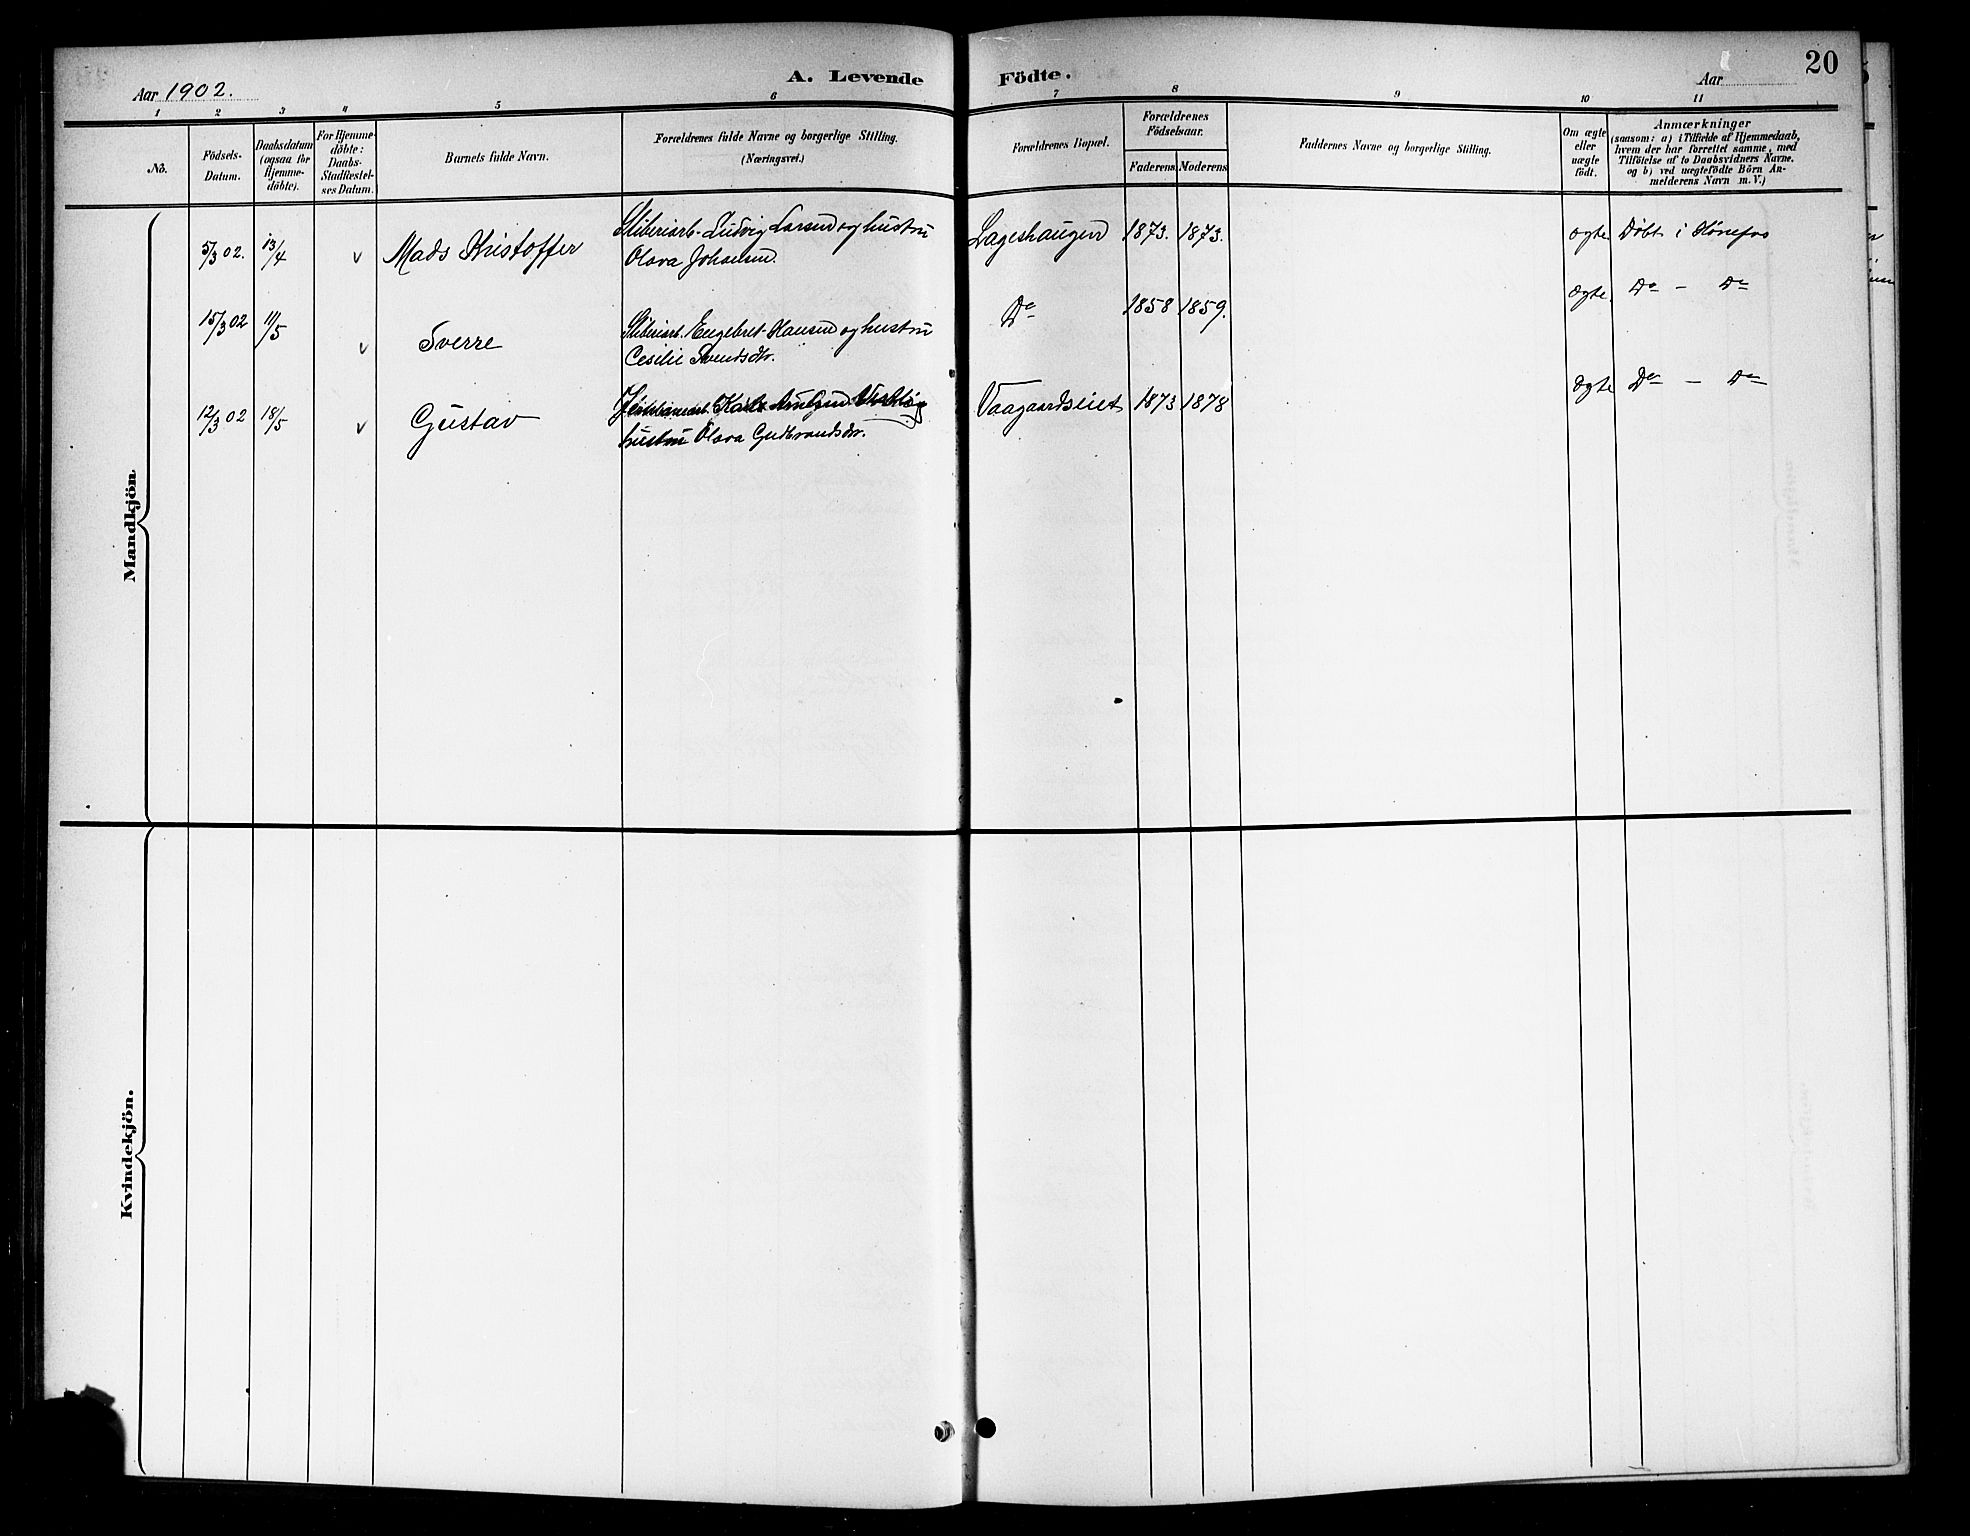 Aar 1902.
A. Levende Födte.
Aar
20
1 2 3 4 5 6 7 8 9 10 11
No.
Födsels-
Datum.
Daabsdatum
(ogsaa for
Hjemme-
döbte).
For Hjemme-
döbte:
Daabs-
Stadfæstel-
ses Datum.
Barnets fulde Navn.
Forældrenes fulde Navne og borgerlige Stilling.
(Næringsvei.)
Forældrenes Bopæl.
Forældrenes
Födselsaar.
Faderens Moderens
Faddernes Navne og borgerlige Stilling.
Om ægte
eller
uægte
födt.
Anmærkninger
(saasom: a) i Tilfælde af Hjemmedaab,
hvem der har forrettet samme, med
Tilföielse af to Daabsvidners Navne.
og b) ved uægtefödte Börn An-
melderens Navn m. V.)
Mandkjön
5/3 02. 13/4 v Mads Kristoffer
Sliberiarb. Ludvig Larsen og hustru
Olava Johansen.
Lageshaugen 1873. 1873.
ægte Døbt i Hönefos
15/3 02 11/5 v Sverre
Sliberiarb. Engebret Hansen og hustru
Cesilie Svendsdtr.
Do 1858 1859.
ægte Do - Do
12/3 02 18/5 v Gustav
og
hustru Olava Gudbrandsdtr.
Vaagaardseiet 1873 1878
ægte Do - Do
Kvindekjön.